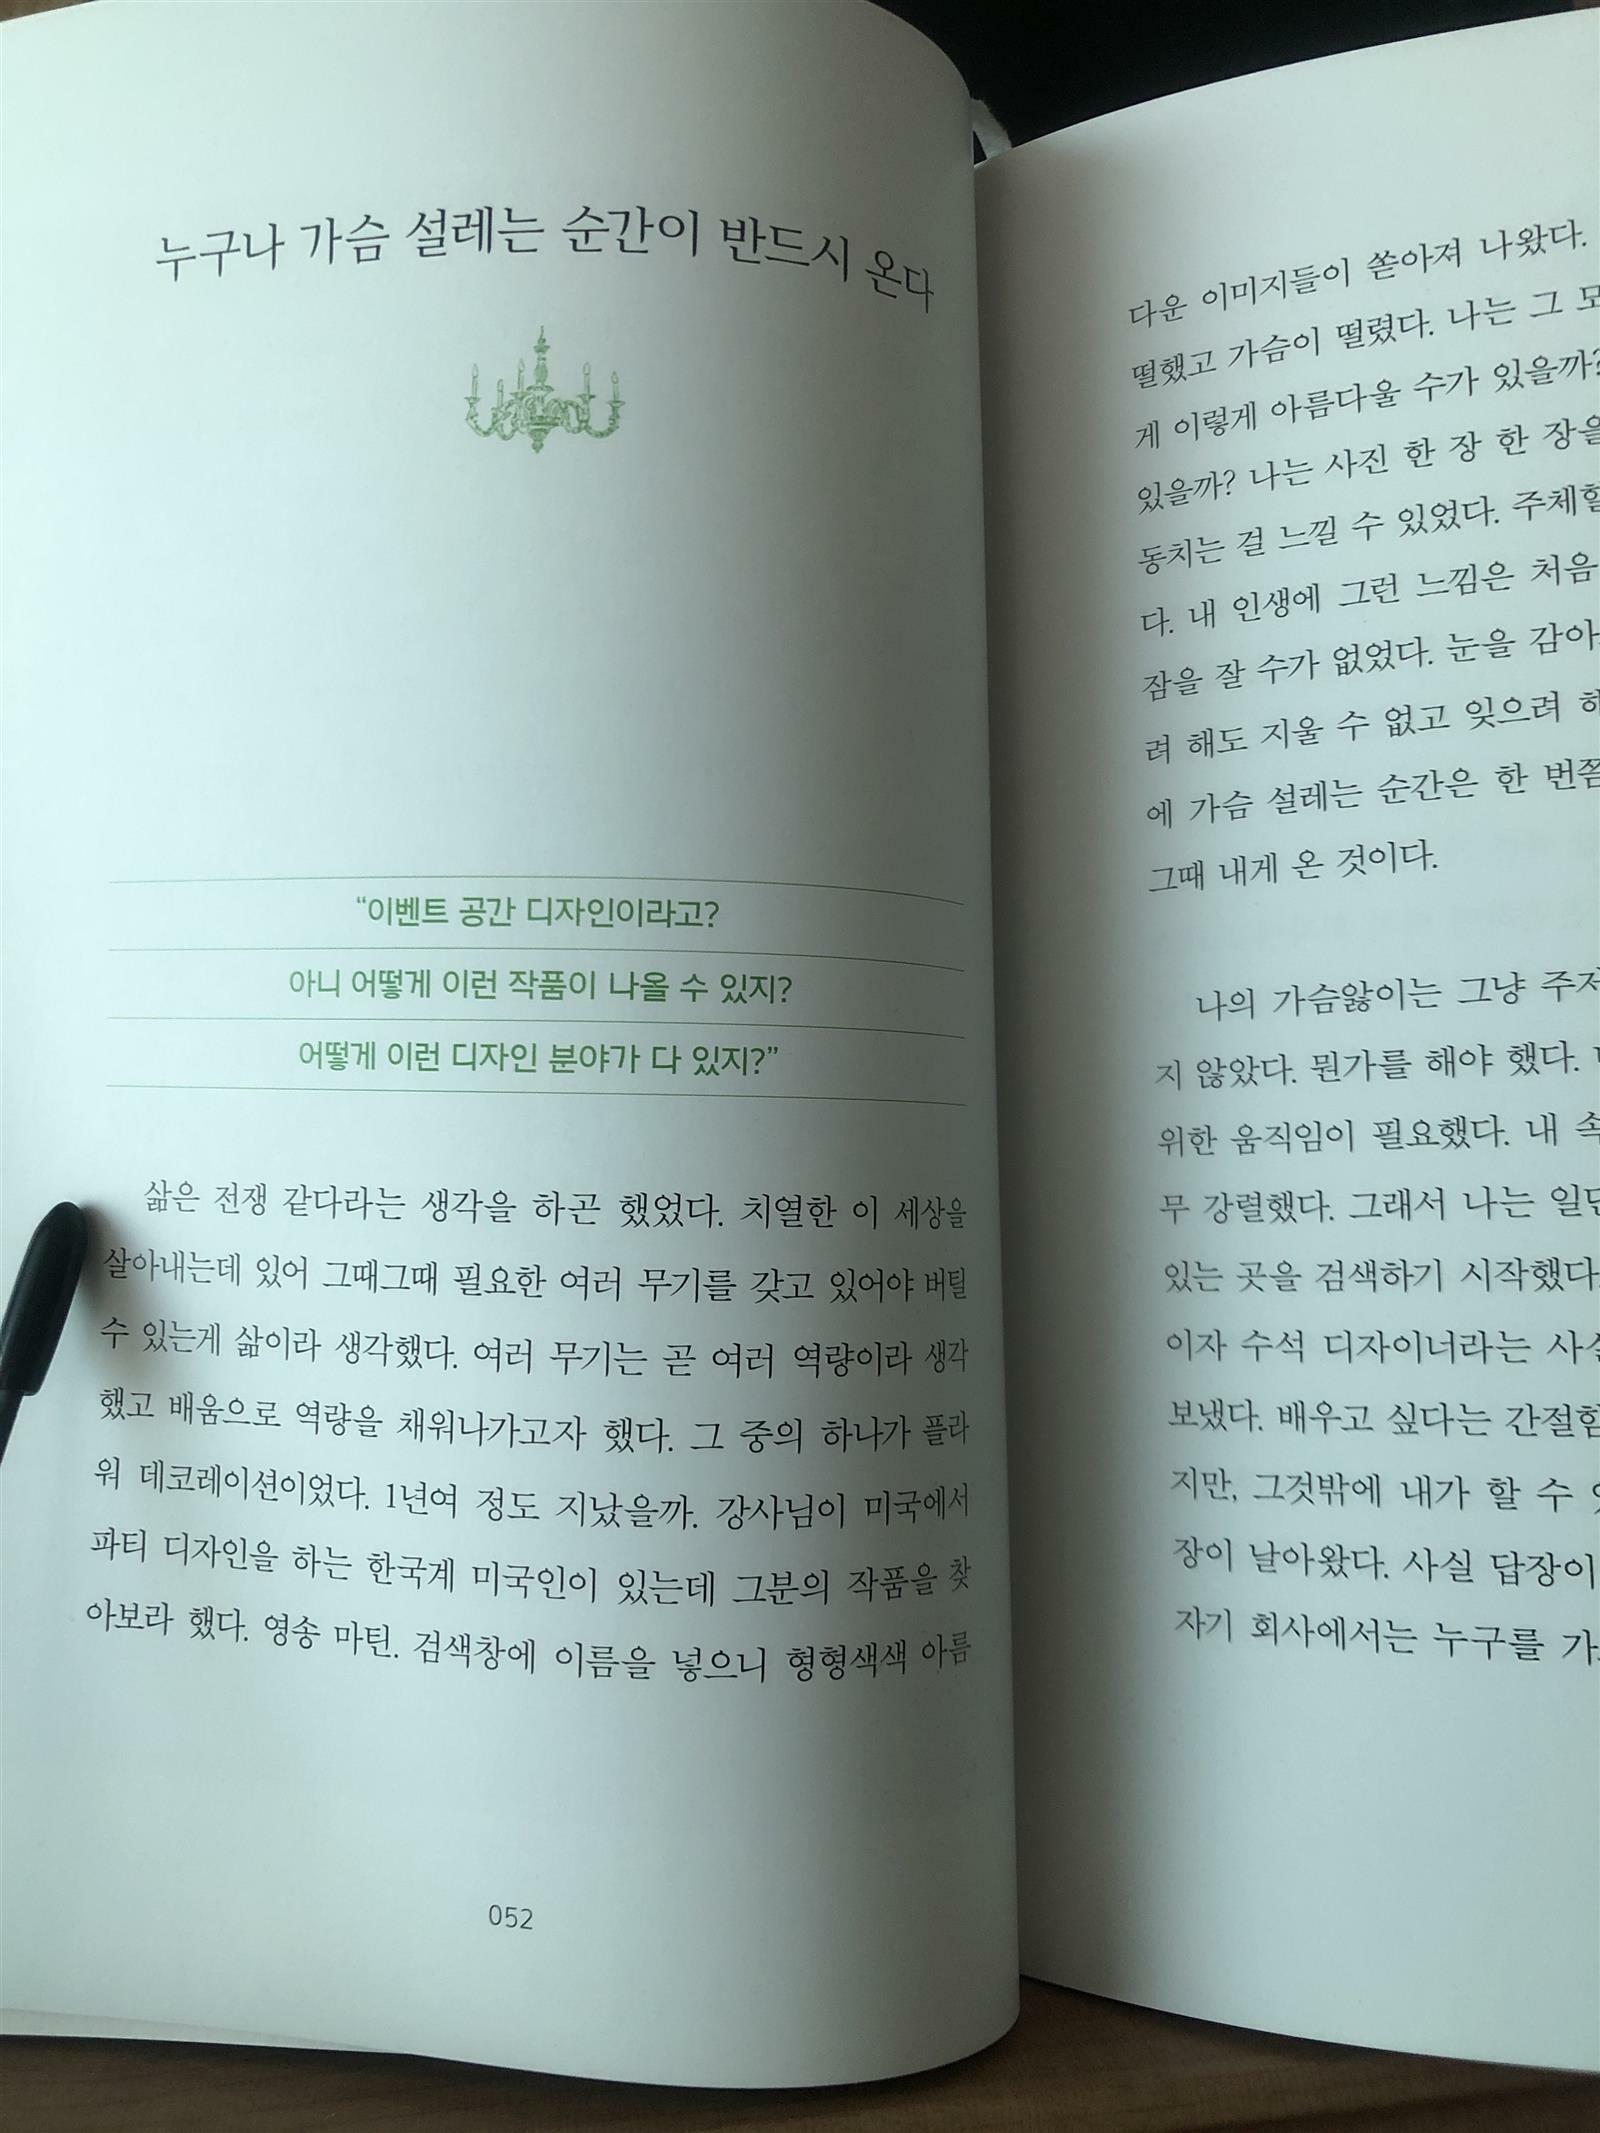 누구나 가슴 설레는 순간이 반드시 온다
“이벤트 공간 디자인이라고?
아니 어떻게 이런 작품이 나올 수 있지?
어떻게 이런 디자인 분야가 다 있지?”
삶은 전쟁 같다라는 생각을 하곤 했었다. 치열한 이 세상을
살아내는데 있어 그때그때 필요한 여러 무기를 갖고 있어야 버틸
수 있는게 삶이라 생각했다. 여러 무기는 곧 여러 역량이라 생각
했고 배움으로 역량을 채워나가고자 했다. 그 중의 하나가 플라
워 데코레이션이었다. 1년여 정도 지났을까. 강사님이 미국에서
파티 디자인을 하는 한국계 미국인이 있는데 그분의 작품을 찾
아보라 했다. 영송 마틴. 검색창에 이름을 넣으니 형형색색 아름
052
다운 이미지들이 쏟아져 나왔다.
떨했고 가슴이 떨렸다. 나는 그
게 이렇게 아름다울 수가 있을까?
있을까? 나는 사진 한 장 한 장을
동치는 걸 느낄 수 있었다. 주체할
다. 내 인생에 그런 느낌은 처음
잠을 잘 수가 없었다. 눈을 감아
려 해도 지울 수 없고 잊으려
에 가슴 설레는 순간은 한 번쯤
그때 내게 온 것이다.
나의 가슴앓이는 그냥
지 않았다. 뭔가를 해야 했다.
위한 움직임이 필요했다. 내
무 강렬했다. 그래서 나는
있는 곳을 검색하기 시작했다.
이자 수석 디자이너라는
보냈다. 배우고 싶다는 간절함
지만, 그것밖에 내가 할 수
장이 날아왔다. 사실 답장이
자기 회사에서는 누구를